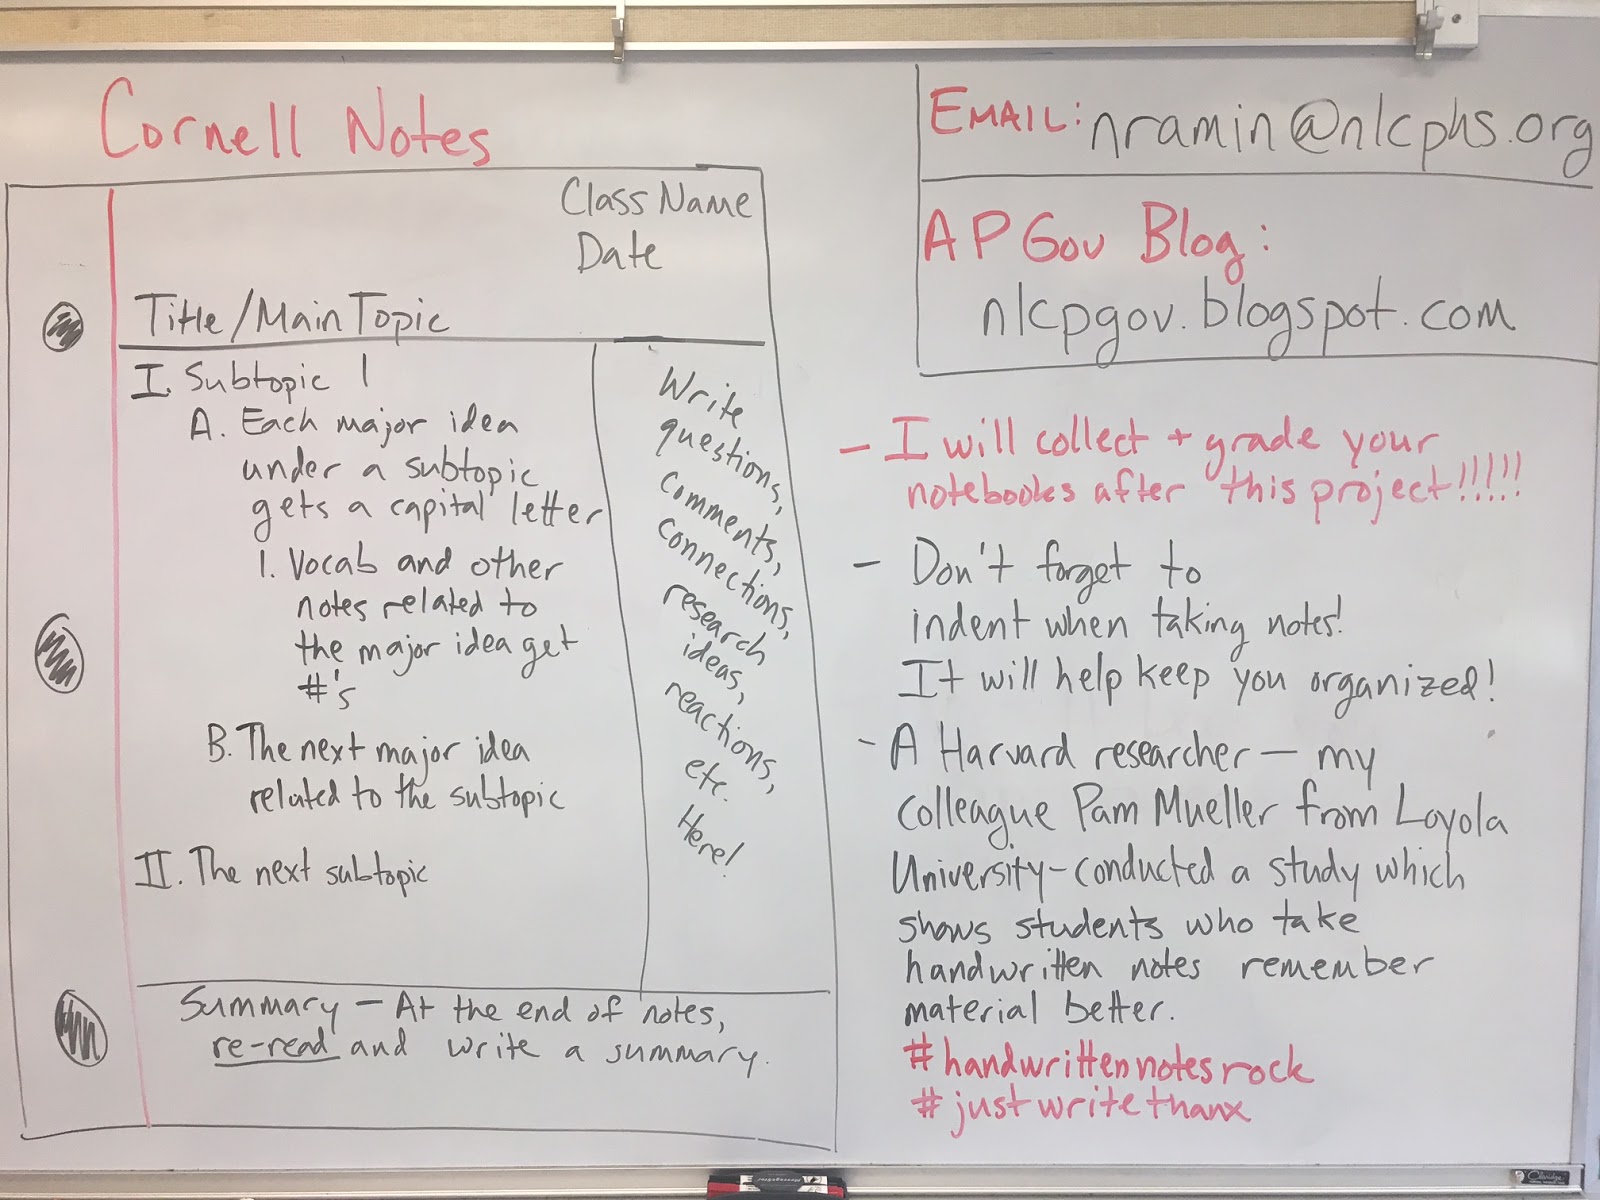 Cornell Notes
Class Name
Date
Title/Main Topic
I. Subtopic 1
A. Each major idea
under a subtopic
gets a capital letter
1. Vocab and other
notes related to
the major idea get
#'s
B. The next major idea
related to the subtopic
II. The next subtopic
Write
questions,
comments,
connections,
research
ideas,
reactions,
etc.
Here!
Summary — At the end of notes,
re-read and write a summary.
EMAIL: nramin@nlcphs.org
AP Gov Blog:
nlcpgov.blogspot.com
- I will collect + grade your
notebooks after this project!!!!!
- Don't forget to
indent when taking notes!
It will help keep you organized!
- A Harvard researcher — my
colleague Pam Mueller from Loyola
University - conducted a study which
shows students who take
handwritten notes remember
material better.
#handwrittennotesrock
#justwritethanx